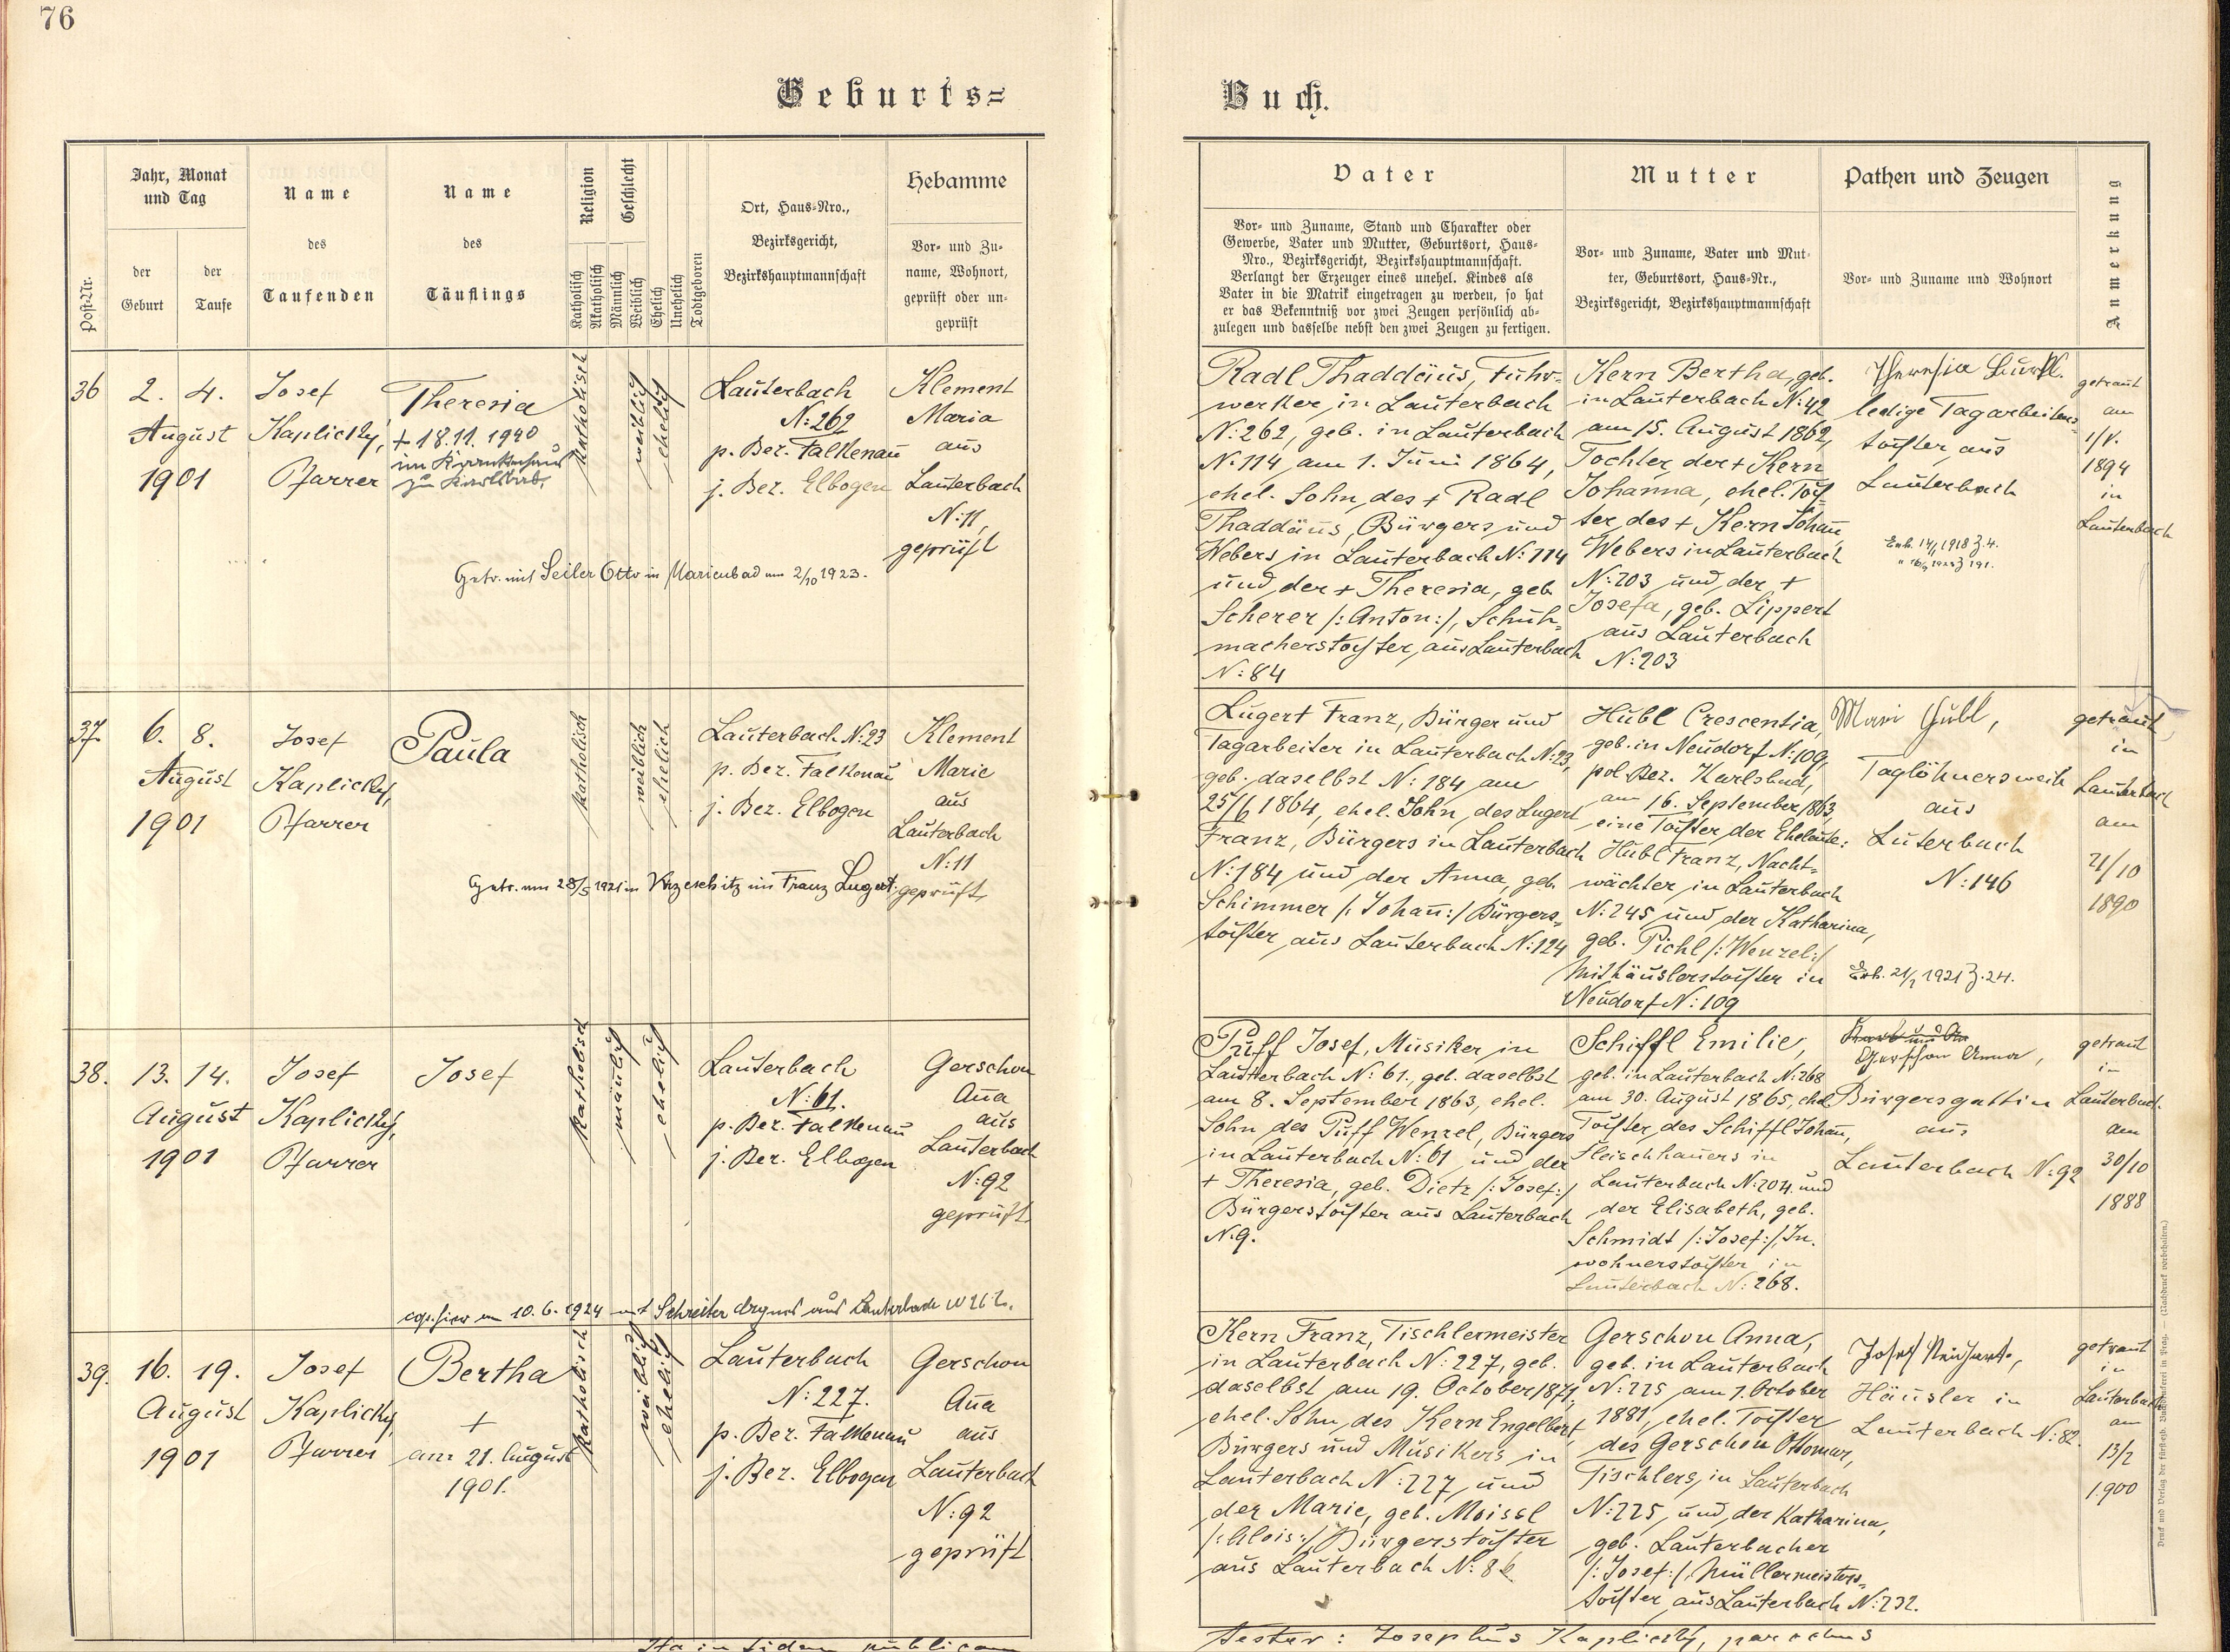 76
Geburts=
Buch.
Post-Nr.
Jahr, Monat
und Tag
der
Geburt
der
Taufe
Name
des
Taufenden
Name
des
Täuflings
Religion
Katholisch
Akatholisch
Geschlecht
Männlich
Weiblich
Ehelich
Unehelich
Todtgeboren
Ort, Haus-Nro.,
Bezirksgericht,
Bezirkshauptmannschaft
Hebamme
Vor- und Zu-
name, Wohnort,
geprüft oder un-
geprüft
Vater
Vor- und Zuname, Stand und Charakter oder
Gewerbe, Vater und Mutter, Geburtsort, Haus-
Nro., Bezirksgericht, Bezirkshauptmannschaft.
Verlangt der Erzeuger eines unehel. Kindes als
Vater in die Matrik eingetragen zu werden, so hat
er das Bekenntniß vor zwei Zeugen persönlich ab-
zulegen und dasselbe nebst den zwei Zeugen zu fertigen.
Mutter
Vor- und Zuname, Vater und Mut-
ter, Geburtsort, Haus-Nr.,
Bezirksgericht, Bezirkshauptmannschaft
Pathen und Zeugen
Vor- und Zuname und Wohnort
Anmerkung
36
2. 4.
August
1901
Josef
Kaplický,
Pfarrer
Theresia
+ 18.11.1940
im Krankenhaus
zu Karlsbad.
katholisch
weiblich
ehelich
Lauterbach
N:262
p. Bez. Falkenau
j. Bez. Elbogen
Klement
Maria
aus
Lauterbach
N:11,
geprüft
Getr. mit Seiler Otto in Marienbad am 2/10 1923.
Radl Thaddäus, Fuhr-
werker in Lauterbach
N:262, geb. in Lauterbach
N:114 am 1. Juni 1864,
ehel. Sohn des + Radl
Thaddäus, Bürgers und
Webers in Lauterbach N:114
und der + Theresia, geb.
Scherer /:Anton:/, Schuh-
macherstochter, aus Lauterbach
N:84
Kern Bertha, geb.
in Lauterbach N:42
am 15. August 1862,
Tochter der + Kern
Johanna, ehel. Toch
ter des + Kern Johann,
Webers in Lauterbach
N:203 und der +
Josefa, geb. Lippert
aus Lauterbach
N:203
Theresia
ledige Tagarbeiters-
tochter aus
Lauterbach
1918 Z. 4.
191.
getraut
am
1/V.
1894
in
Lauterbach
37.
6. 8.
August
1901
Josef
Kaplický,
Pfarrer
Paula
katholisch
weiblich
ehelich
Lauterbach N:23
p. Bez. Falkenau
j. Bez. Elbogen
Klement
Marie
aus
Lauterbach
N:11
geprüft,
Getr. am 28/5 1921 in Franz Lugert.
Lugert Franz, Bürger und
Tagarbeiter in Lauterbach N:23,
geb. daselbst N:184 am
25/6 1864, ehel. Sohn des Lugert
Franz, Bürgers in Lauterbach
N:184 und der Anna, geb.
Schimmer /:Johann:/ Bürgers-
tochter aus Lauterbach N:124
Hübl Crescentia,
geb. in Neudorf N:109,
pol. Bez. Karlsbad,
am 16. September 1863,
eine Tochter der Eheleute:
Hübl Franz, Nacht-
wächter in Lauterbach
N:245 und der Katharina,
geb. Pichl /:Wenzel:/
Mithäuslerstochter in
Neudorf N:109
Mari
Taglöhnersweib
aus
Luterbach
N:146
1921 Z. 24.
getraut
in
Lauterbach
am
21/10
1890
38.
13. 14.
August
1901
Josef
Kaplický,
Pfarrer
Josef
katholisch
männlich
ehelich
Lauterbach
N:61.
p. Bez. Falkenau
j. Bez. Elbogen
Gerschon
Anna
aus
Lauterbach
N:92
geprüft.
10.6.1924 mit Schreiter Agnes aus Lauterbach
Puff Josef, Musiker in
Lauterbach N:61., geb. daselbst
am 8. September 1863, ehel.
Sohn des Puff Wenzel, Bürgers
in Lauterbach N:61 und der
+ Theresia, geb. Dietz /:Josef:/
Bürgerstochter aus Lauterbach
N.9.
Schiffl Emilie,
geb. in Lauterbach N:268
am 30. August 1865, ehel.
Tochter des Schiffl Johann,
Fleischhauers in
Lauterbach N:204. und
der Elisabeth, geb.
Schmidt /:Josef:/, In-
wohnerstochter in
Lauterbach N:268.
Gerschon Anna,
Bürgersgattin
aus
Lauterbach N:92
getraut
in
Lauterbach.
am
30/10
1888
39.
16. 19.
August
1901
Josef
Kaplický
Pfarrer
Bertha
+
am 21. August
1901.
katholisch
weiblich
ehelich
Lauterbach
N:227.
p. Bez. Falkenau
j. Bez. Elbogen
Gerschon
Anna
aus
Lauterbach
N:92
geprüft
Kern Franz, Tischlermeister
in Lauterbach N:227, geb.
daselbst am 19. October 1871,
ehel. Sohn des Kern Engelbert,
Bürgers und Musikers in
Lauterbach N:227 und
der Marie, geb. Moissl
/:Alois:/, Bürgerstochter
aus Lauterbach N:86
Gerschon Anna,
geb. in Lauterbach
N:225 am 7. October
1881, ehel. Tochter
des Gerschon Ottomar,
Tischlers, in Lauterbach
N:225 und der Katharina,
geb. Lauterbacher
/:Josef:/, Müllermeisters-
tochter, aus Lauterbach N:232.
Josef
Häusler in
Lauterbach N:82.
getraut
in
Lauterbach
am
13/2
1900
Ita in fidem publicam
Testor: Josephus Kaplický, parochus
Druck und Verlag der fürsterzb. Buchdruckerei in Prag. — (Nachdruck vorbehalten.)